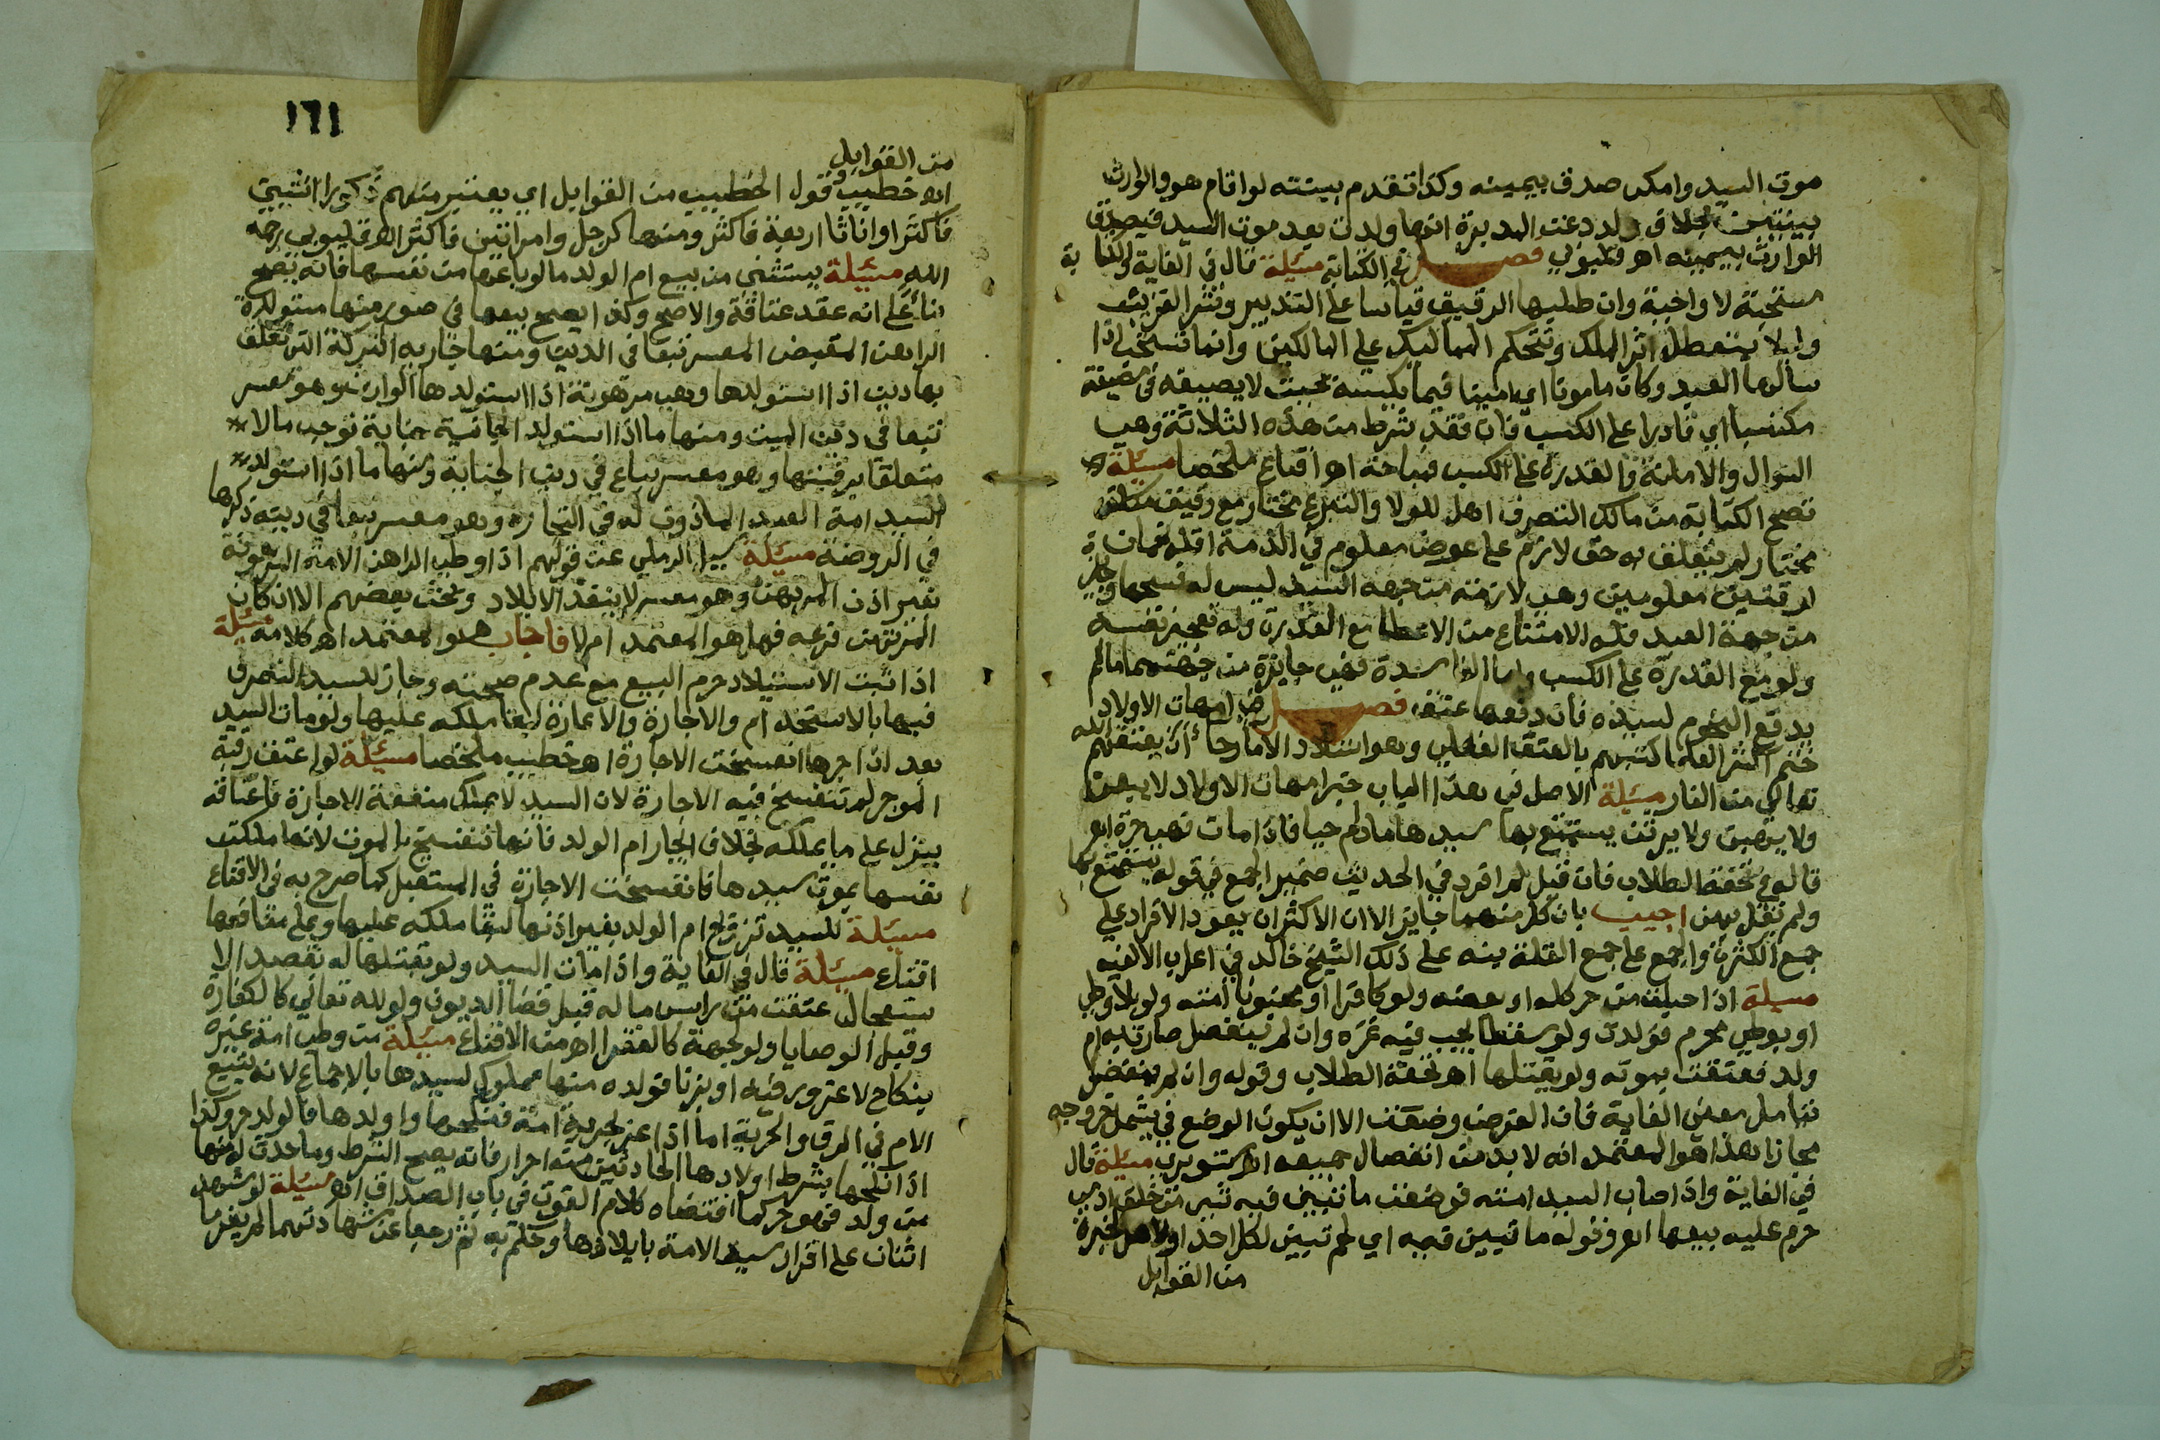 موت السيد وامكن صدق بيمينه وكذا تقدم بينته لواقام هو والوارث
بينتين بخلاف ولد دعت المدبرة انها ولدته بعد موت السيد فيصدق
الوارث بيمينه اهـ قليوبي فصل في الكتابة مسيلة قال في الغاية والكتابة
مستحبة لا واجبة وان طلبها الرقيق قياسا على التدبير وشرا القريب
وليلا يتعطل اثر الملك وتتحكم المماليك على المالكين وانما تستحب اذا
سالها العبد وكان مامونا اي امينا فيما يكسبه بحيث لا يضيعه في معصية
مكتسبا اي قادرا على الكسب فان فقد شرط من هذه الثلاثة وهي
السوال والامانة والقدرة على الكسب فمباحة اهـ اقناع ملخصا مسيلة
تصح الكتابة من مالك التصرف اهل للولا والتبرع مختار مع رقيق مكلف
مختار لم يتعلق به حق لازم على عوض معلوم في الذمة اقله نجمان
او قتين معلومين وهي لازمة من جهة السيد ليس له فسخها وجايزة
من جهة العبد فله الامتناع من الاعطا مع القدرة وله تعجيز نفسه
ولو مع القدرة على الكسب واما الفاسدة فهي جايزة من جهتهما ما لم
يدفع النجوم لسيده فان دفعها عتق فصل في امهات الاولاد
ختم اكثر العلما كتبهم بالعتق الفعلي وهو استيلاد الاما رجا ان يعتقهم الله
تعالى من النار مسيلة الاصل في هذا الباب خبر امهات الاولاد لا يبعن
ولا يوهبن ولا يورثن يستمتع بها سيدها مادام حيا فاذا مات فهي حرة اهـ
قالو في تحفة الطلاب فان قيل لم افرد في الحديث ضمير الجمع في قوله يستمتع بها
ولم يقل بهن اجيب بان كلا منهما جايز الا ان الاكثر ان يعود الافراد على
جمع الكثرة والجمع على جمع القلة نبه على ذلك الشيخ خالد في اعراب الالفيه
مسيلة اذا حبلت من حر كله او بعضه ولو كافرا او مجنونا امته ولو بلا وطي
او بوطي محرم فولدت ولو سقطا يجب فيه غره وان لم ينفصل صارت ام
ولد فعتقت بموته ولو بقتلها اهـ تحفة الطلاب وقوله وان لم ينفصل
تامل معنى الغاية فان الغرض وضعت الا ان يكون الوضع في يشمل خروجه
مجازا هذا هو المعتمد انه لا بد من انفصال جميعه اهـ شوبري مسيلة قال
في الغاية واذا اصاب السيد امته فوضعت ما تبين فيه شي من خلق ادمي
حرم عليه بيعها اهـ وقوله ما تبين فيه اي لم تبين لكل احد او لاهل الخبرة
من القوابل
١٦١
من القوابل
اهـ خطيب وقول الخطيب من القوابل اي يعتبر منهم ذكورا اثنين
فاكثر او اناثا اربعة فاكثر ومنها كرجل وامراتين فاكثر اهـ قليوبي رحمه
الله مسيلة يستثنى من بيع ام الولد ما لو باعها من نفسها فانه يصح
بنا على انه عقد عتاقة والاصح وكذا يصح بيعها في صور منها مستولدة
الراهن المقبض المعسر تباع في الدين ومنها جارية التركة التي تعلق
بها دين اذا استولدها وهي مرهونة اذا استولدها الوارث وهو معسر
تباع في دين الميت ومنها ما اذا استولد الجانية جناية توجب مالا
متعلقا برقبتها وهو معسر تباع في دين الجناية ومنها ما اذا استولد
السيد امة العبد الماذون له في التجارة وهو معسر تباع في دينه ذكرها
في الروضة مسيلة سيل الرملي عن قولهم اذا وطي الراهن الامة المرهونة
بغير اذن المرتهن وهو معسر لا ينفذ الايلاد وبحث بعضهم الا ان كان
المرتهن فرعه فهل هو المعتمد ام لا فاجاب هو المعتمد اهـ كلامه مسيلة
اذا ثبت الاستيلاد حرم البيع مع عدم صحته وجاز للسيد التصرف
فيها بالاستخدام والاجارة والاعارة لبقا ملكه عليها ولو مات السيد
بعد ان اجرها انفسخت الاجارة اهـ خطيب ملخصا مسيلة لو اعتق رقبة
الموجر لم تنفسخ فيه الاجارة لان السيد لا يملك منفعة الاجارة فاعتاقه
ينزل على ما يملكه بخلاف ايجار ام الولد فانها تنفسخ بالموت لانها ملكت
نفسها بموت سيدها فانفسخت الاجارة في المستقبل كما صرح به في الاقناع
مسيلة للسيد تزويج ام الولد بغير اذنها لبقا ملكه عليها وعلى منافعها
اقناع مسيلة قال في الغاية واذا مات السيد ولو بقتلها له بقصد الا
ستعجال عتقت من راس ماله قبل قضا الديون ولو لله تعالى كالكفارة
وقبل الوصايا ولو لجهة كالفقرا اهـ من الاقناع مسيلة من وطي امة غيره
بنكاح لا غرور فيه او بزنا فولده منها مملوك لسيدها بالاجماع لانه يتبع
الام في الرق والحرية اما اذا غر بحرية امة فنكحها واولدها فالولد حر وكذا
اذا نكحها بشرط اولادها الحادثين منه احرار فانه يصح الشرط وما حدث له منها
من ولد فهو حر كما اقتضاه كلام القوت في باب الصداق اهـ مسيلة لو شهد
اثنان على اقرار سيد الامة بايلادها وحكم به ثم رجعا عن شهادتهما لم يغرما